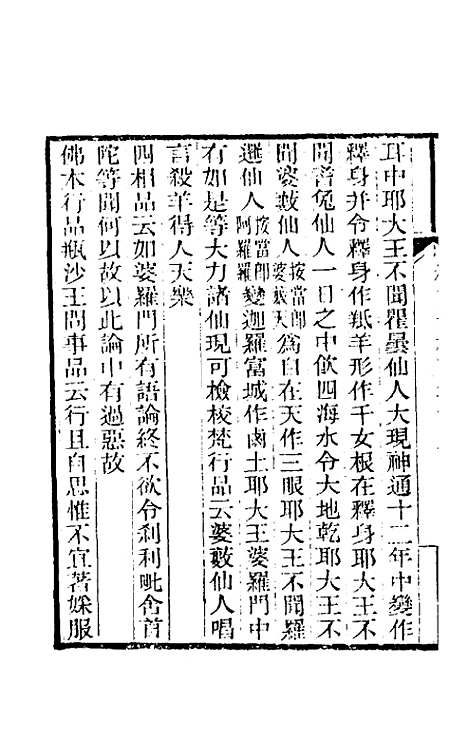 耳中耶大王不聞瞿曇仙人大現神通十二年中變作
釋身并令釋身作羝羊形作千女根在釋身耶大王不
聞耆兔仙人一日之中飲四海水令大地乾耶大王不
聞婆藪仙人按當即婆藪天為自在天作三眼耶大王不聞羅
邏仙人按當即阿羅邏變迦羅富城作鹵土耶大王婆羅門中
有如是等大力諸仙現可檢校梵行品云婆藪仙人唱
言殺羊得人天樂
四相品云如婆羅門所有語論終不欲令剎利毗舍首
陀等聞何以故以此論中有過惡故
佛本行品瓶沙王問事品云行且自思惟不宜著婇服